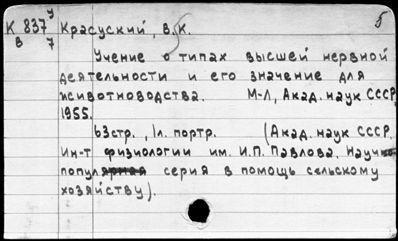 К 837 У Красуский, В.К.
В 7
5
Учение о типах высшей нервной
деятельности и его значение для
животноводства. М-Л, Акад. наук СССР,
1955.
63стр., 1л. портр. (Акад. наук СССР.
Ин-т физиологии им. И.П. Павлова. Научно-
популярная серия в помощь сельскому
хозяйству).